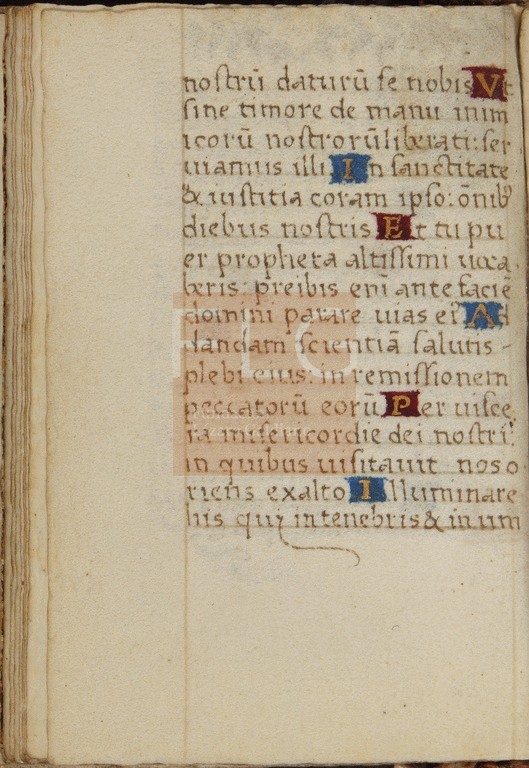 nostrū daturū se nobis Vt
sine timore de manu inim
icorū nostrorū liberati: ser
uiamus illi In sanctitate
& iustitia coram ipso: ōnibꝰ
diebus nostris Et tu pu
er propheta altissimi uoca
beris: preibis eni ante faciē
domini parare uias eiꝰ Ad
dandam scientiā salutis -
plebi eius: in remissionem
peccatorū eorū Per uisce
ra misericordie dei nostri:
in quibus uisitauit nos o
riens ex alto Illuminare
his qui in tenebris & in um